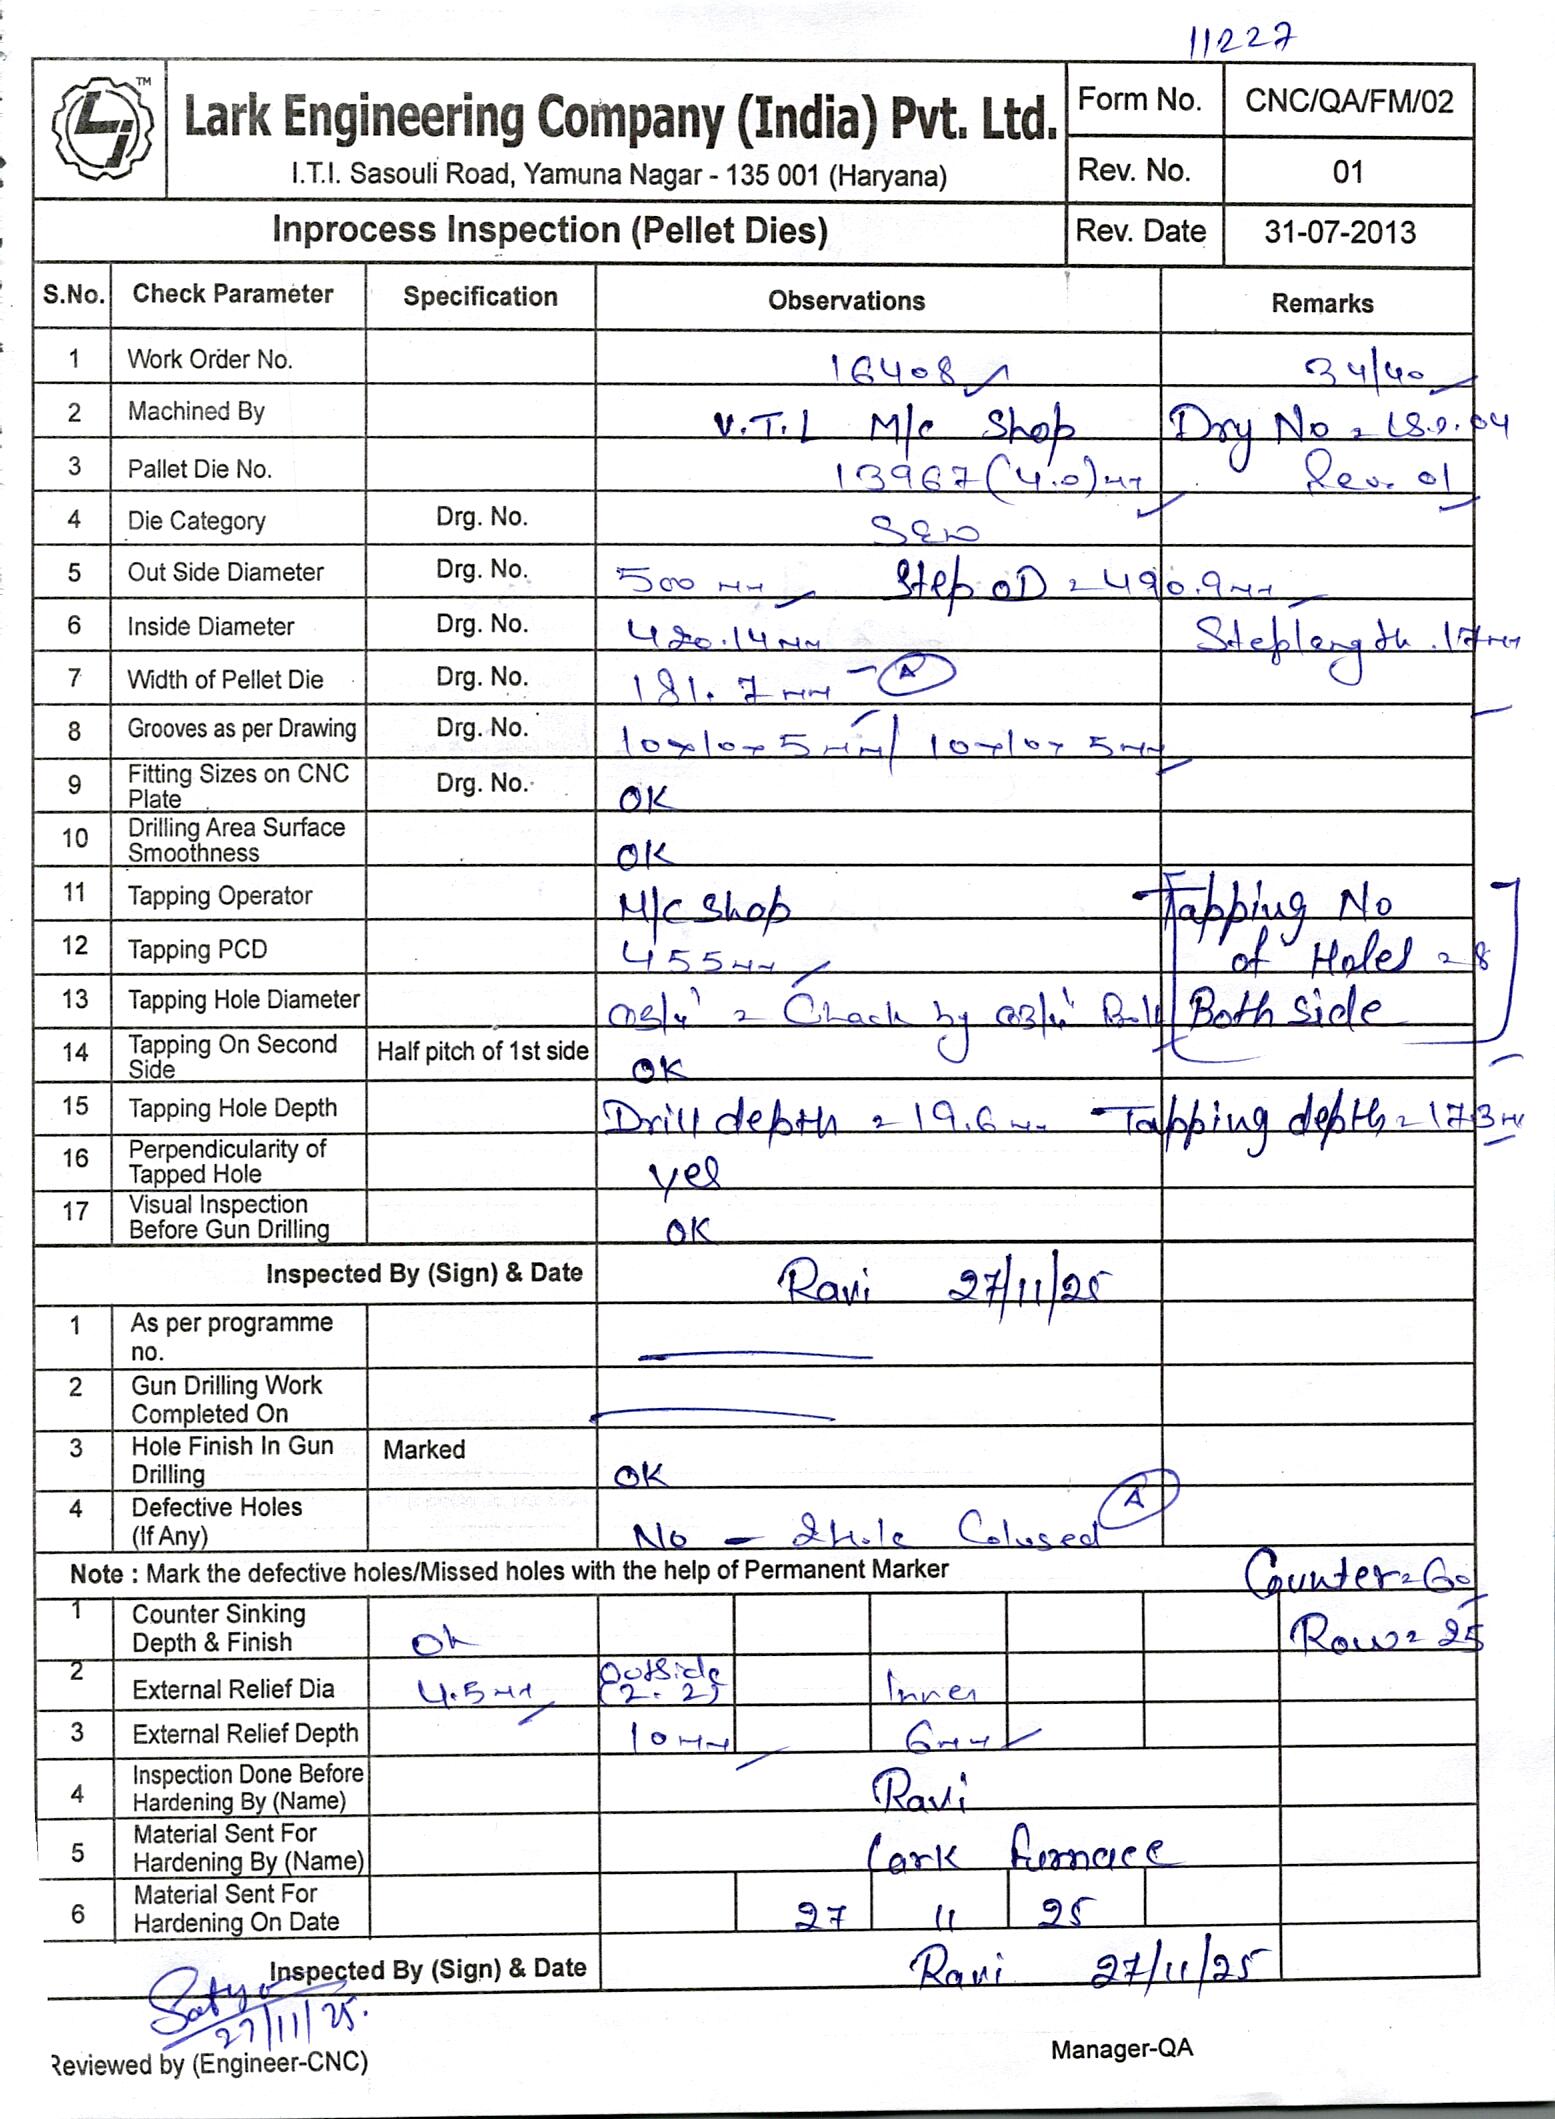 11227
TM
Lark Engineering Company (India) Pvt. Ltd.
I.T.I. Sasouli Road, Yamuna Nagar - 135 001 (Haryana)
Form No. CNC/QA/FM/02
Rev. No. 01
Inprocess Inspection (Pellet Dies)
Rev. Date 31-07-2013
S.No. Check Parameter Specification Observations Remarks
1 Work Order No. 16408 34/40
2 Machined By V.T.L M/c Shop Drg No = 
3 Pallet Die No. 13967 (4.0) mm Rev. 01
4 Die Category Drg. No.
5 Out Side Diameter Drg. No. 500 mm Step OD = 490.9mm
6 Inside Diameter Drg. No. 420.14mm Step length . 17mm
7 Width of Pellet Die Drg. No. 181.7mm - A
8 Grooves as per Drawing Drg. No. 10x10x5mm/ 10x10x5mm
9 Fitting Sizes on CNC Plate Drg. No. OK
10 Drilling Area Surface Smoothness OK
11 Tapping Operator M/C Shop Tapping No
12 Tapping PCD 455mm of Holes = 8
13 Tapping Hole Diameter = Chack by Bolt Both side
14 Tapping On Second Side Half pitch of 1st side OK
15 Tapping Hole Depth Drill depth = 19.6mm Tapping depth = 17.3m
16 Perpendicularity of Tapped Hole yes
17 Visual Inspection Before Gun Drilling OK
Inspected By (Sign) & Date Ravi 27/11/25
1 As per programme no.
2 Gun Drilling Work Completed On
3 Hole Finish In Gun Drilling Marked OK
4 Defective Holes (If Any) No - 2 Hole Colused A
Note : Mark the defective holes/Missed holes with the help of Permanent Marker Counter = 60
1 Counter Sinking Depth & Finish Ok Row = 25
2 External Relief Dia 4.5mm Outside (2.2) Inner
3 External Relief Depth 10mm 6mm
4 Inspection Done Before Hardening By (Name) Ravi
5 Material Sent For Hardening By (Name) Lark Furnace
6 Material Sent For Hardening On Date 27 11 25
Inspected By (Sign) & Date Ravi 27/11/25
Satya
27/11/25.
Reviewed by (Engineer-CNC) Manager-QA